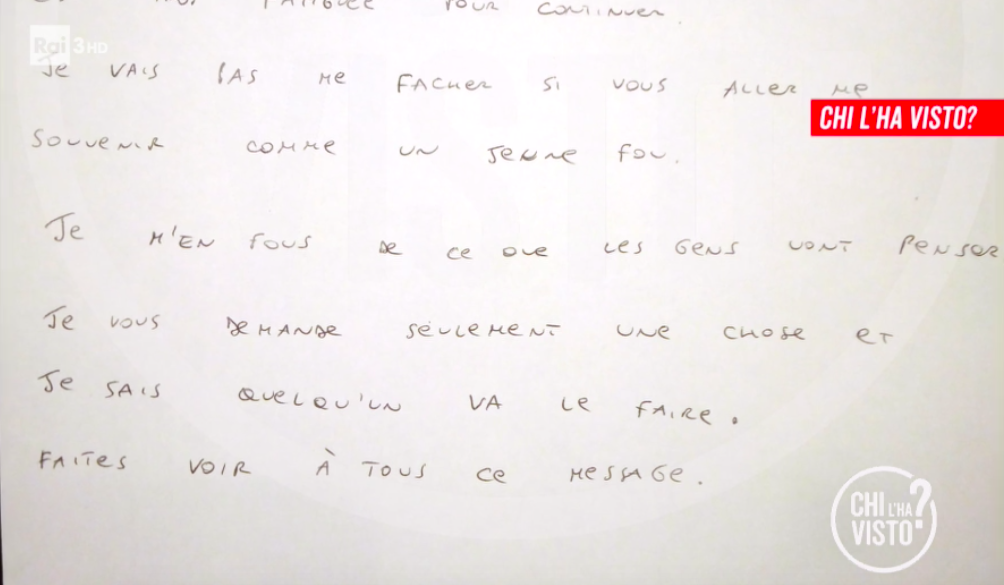 POUR CONTINUER.
Rai 3HD
Je VAIS PAS ME FACHER SI VOUS ALLER ME
CHI L'HA VISTO?
SOUVENIR COMME UN JEUNE FOU.
Je M'EN FOUS DE CE QUE LES GENS VONT PENSER
Je VOUS DEMANDE SEULEMENT UNE CHOSE ET
Je SAIS QUELQU'UN VA LE FAIRE.
FAITES VOIR À TOUS CE MESSAGE.
CHI L'HA VISTO?